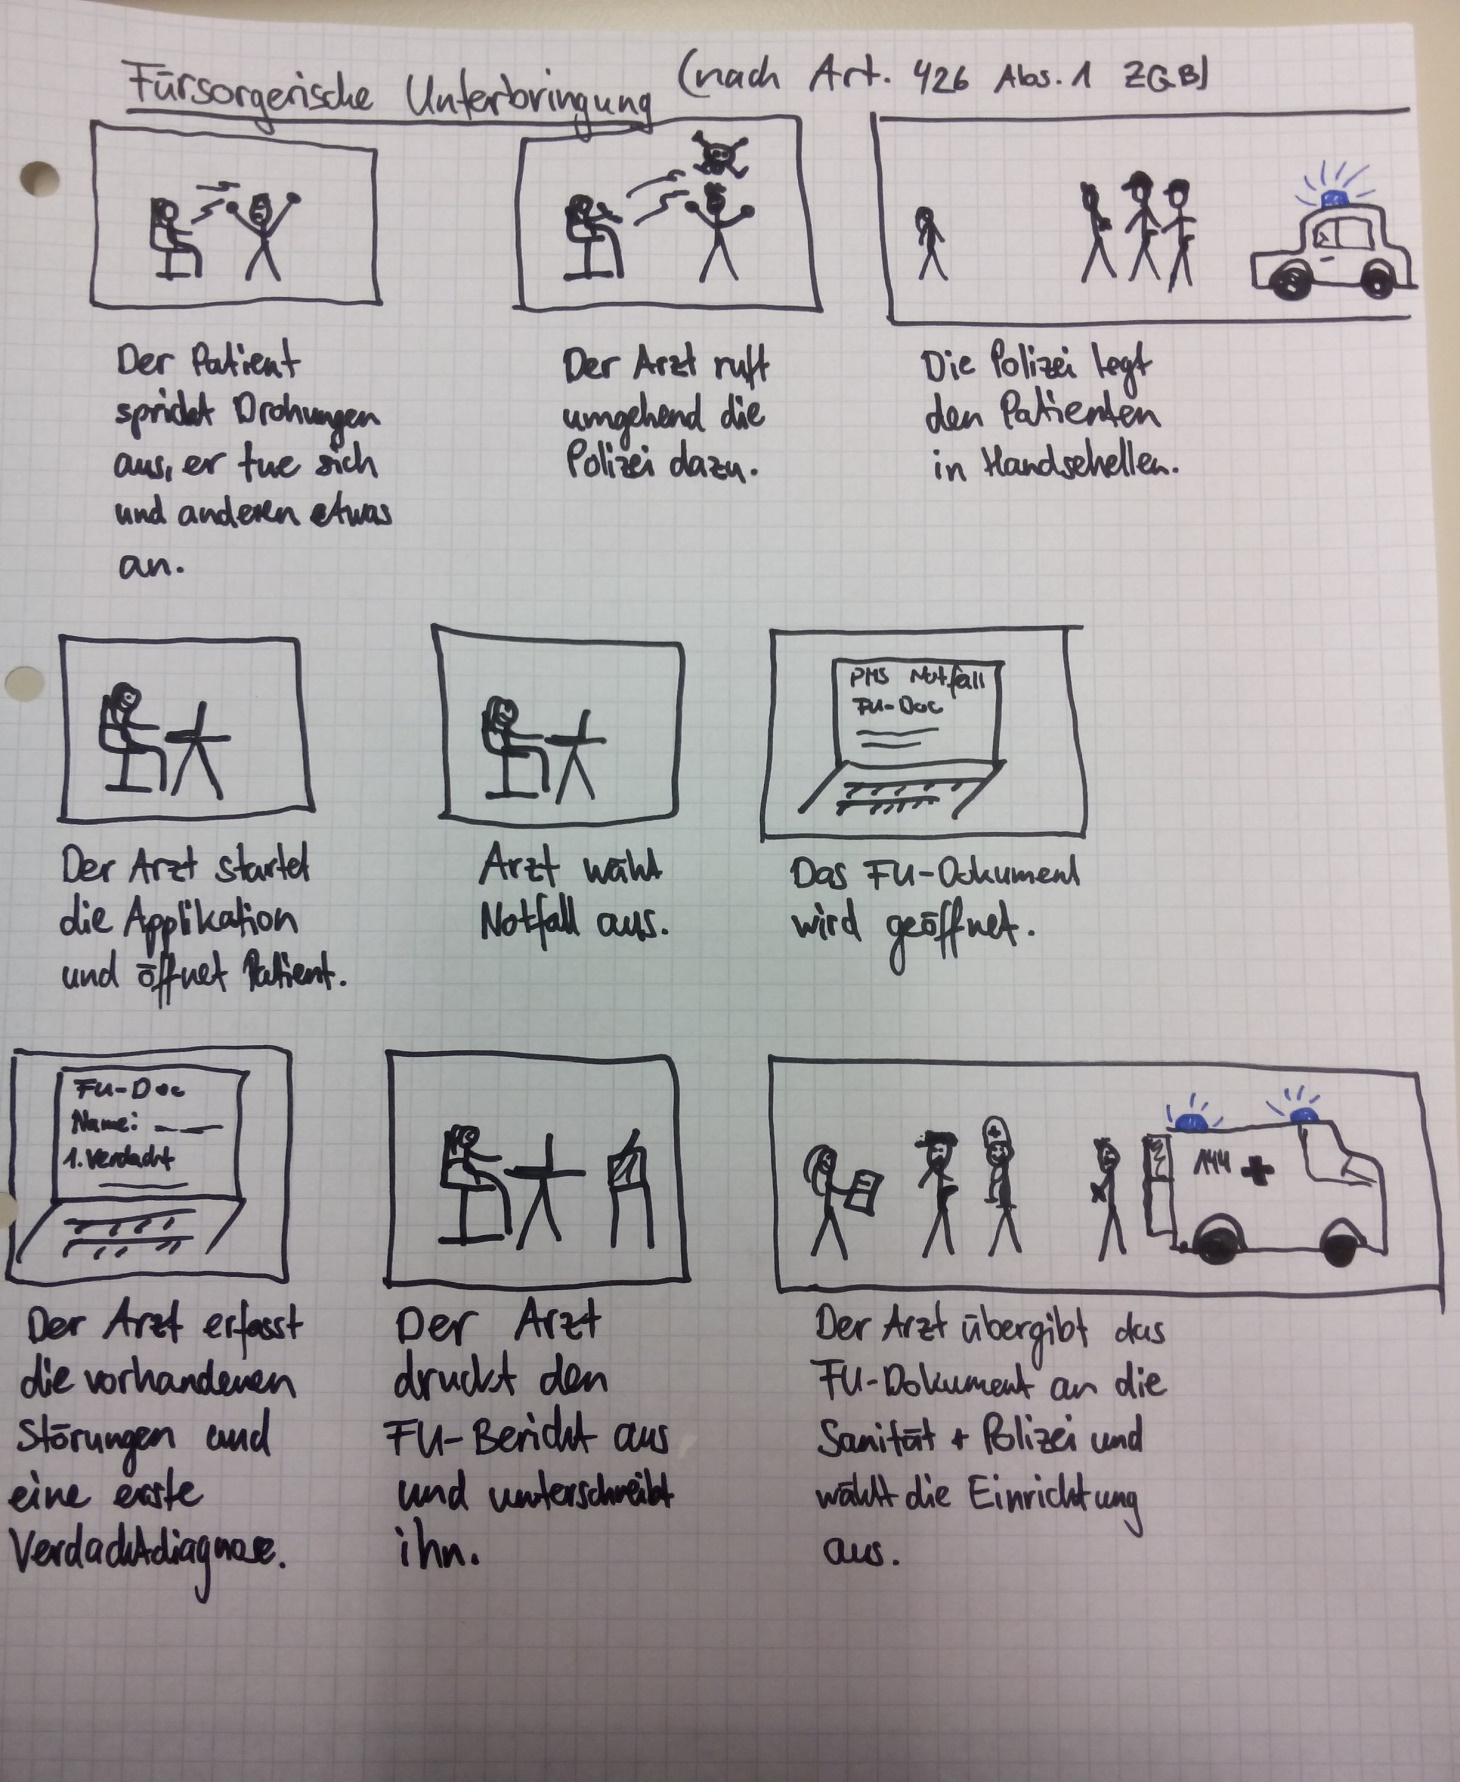 Fürsorgerische Unterbringung (nach Art. 426 Abs. 1 ZGB)
Der Patient
spricht Drohungen
aus, er tue sich
und anderen etwas
an.
Der Arzt ruft
umgehend die
Polizei dazu.
Die Polizei legt
den Patienten
in Handschellen.
Der Arzt startet
die Applikation
und öffnet Patient.
Arzt wählt
Notfall aus.
PMS Notfall
FU-Doc
Das FU-Dokument
wird geöffnet.
FU-Doc
Name:
1. Verdacht
Der Arzt erfasst
die vorhandenen
Störungen und
eine erste
Verdachtdiagnose.
Der Arzt
druckt den
FU-Bericht aus
und unterschreibt
ihn.
144
Der Arzt übergibt das
FU-Dokument an die
Sanität + Polizei und
wählt die Einrichtung
aus.